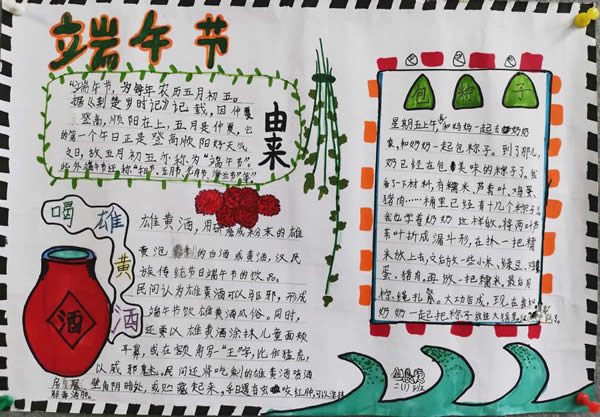 端午节
"端午节,为每年农历五月初五。
据《荆楚岁时记》记载,因仲夏
登高,顺阳在上,五月是仲夏,它
的第一个午日正是登高顺阳好天气
之日,故五月初五亦称为"端午节"。
此外端午节还称"午日节、五月节
由来
喝雄黄酒
酒
雄黄酒,用研磨成粉末的雄
黄泡制的白酒或黄酒,汉民
族传统节日端午节的饮品。
民间认为雄黄酒可以驱邪,形成
端午节饮雄黄酒风俗。同时,
还要以雄黄酒涂抹儿童面颊
耳鼻,或在额角写一"王"字,比作猛虎,
以威邪魅。民间还将吃剩的雄黄酒喷洒
房屋壁角阴暗处,或贮藏起来,
包粽子
星期五上午,我和妈妈一起去奶奶
家,和奶奶一起包粽子。到了那儿,
奶奶已经在包美味的粽子了。我
看了下材料,有糯米、芦苇叶、鸡蛋、
猪肉……桶里已经有十几个粽子了。
我也学着奶奶这样做。将两片芦
苇叶折成漏斗形,在抓一把糯
米放上去,之后放一些小米、绿豆、鸡蛋
黄、猪肉,再放一把糯米,最后用
粽绳扎紧。大功告成,现在我和
奶奶一起把粽子
二(1)班